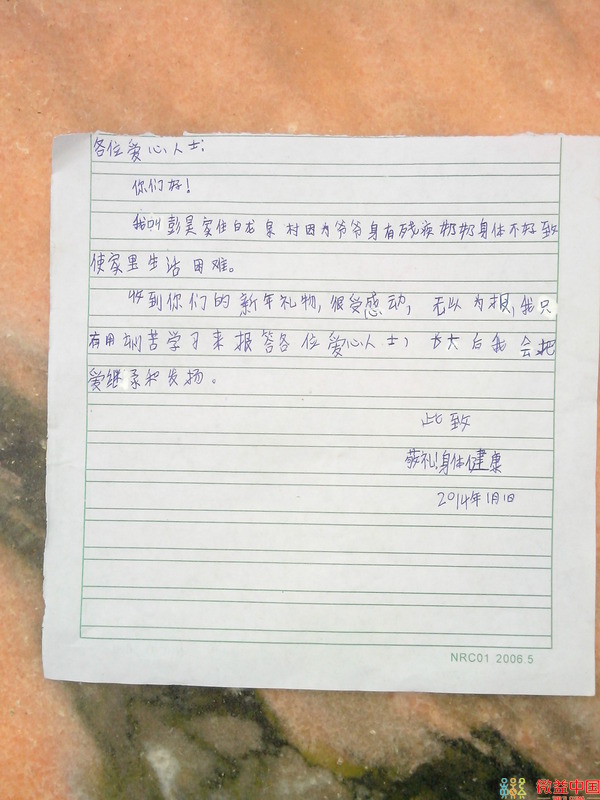 各位爱心人士:
你们好!
我叫彭昊家住白龙泉村因为爷爷身有残疾奶奶身体不好致
使家里生活困难。
收到你们的新年礼物,很受感动,无以为报,我只
有用刻苦学习来报答各位爱心人士,长大后我会把
爱继承和发扬。
此致
敬礼!身体健康
2014年1月1日
NRC01 2006.5
微益中国